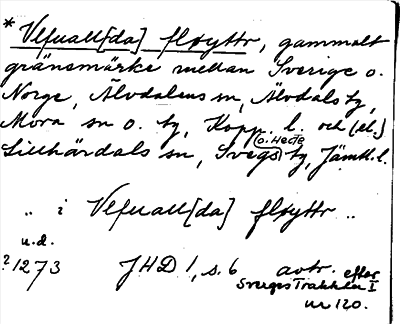 * Vefuall[da] fløyttr, gammalt
gränsmärke mellan Sverige o.
Norge, Älvdalens sn, Älvdals tg,
Mora sn o. tg, Kopp. l. och (el.)
Lillhärdals sn, Svegs o. Hede tg, Jämtl. l.
„ i Vefuall[da] fløyttr „
u.d.
? 1273 JHD 1, s. 6 avtr. efter
Sveriges Traktater I
nr 120.